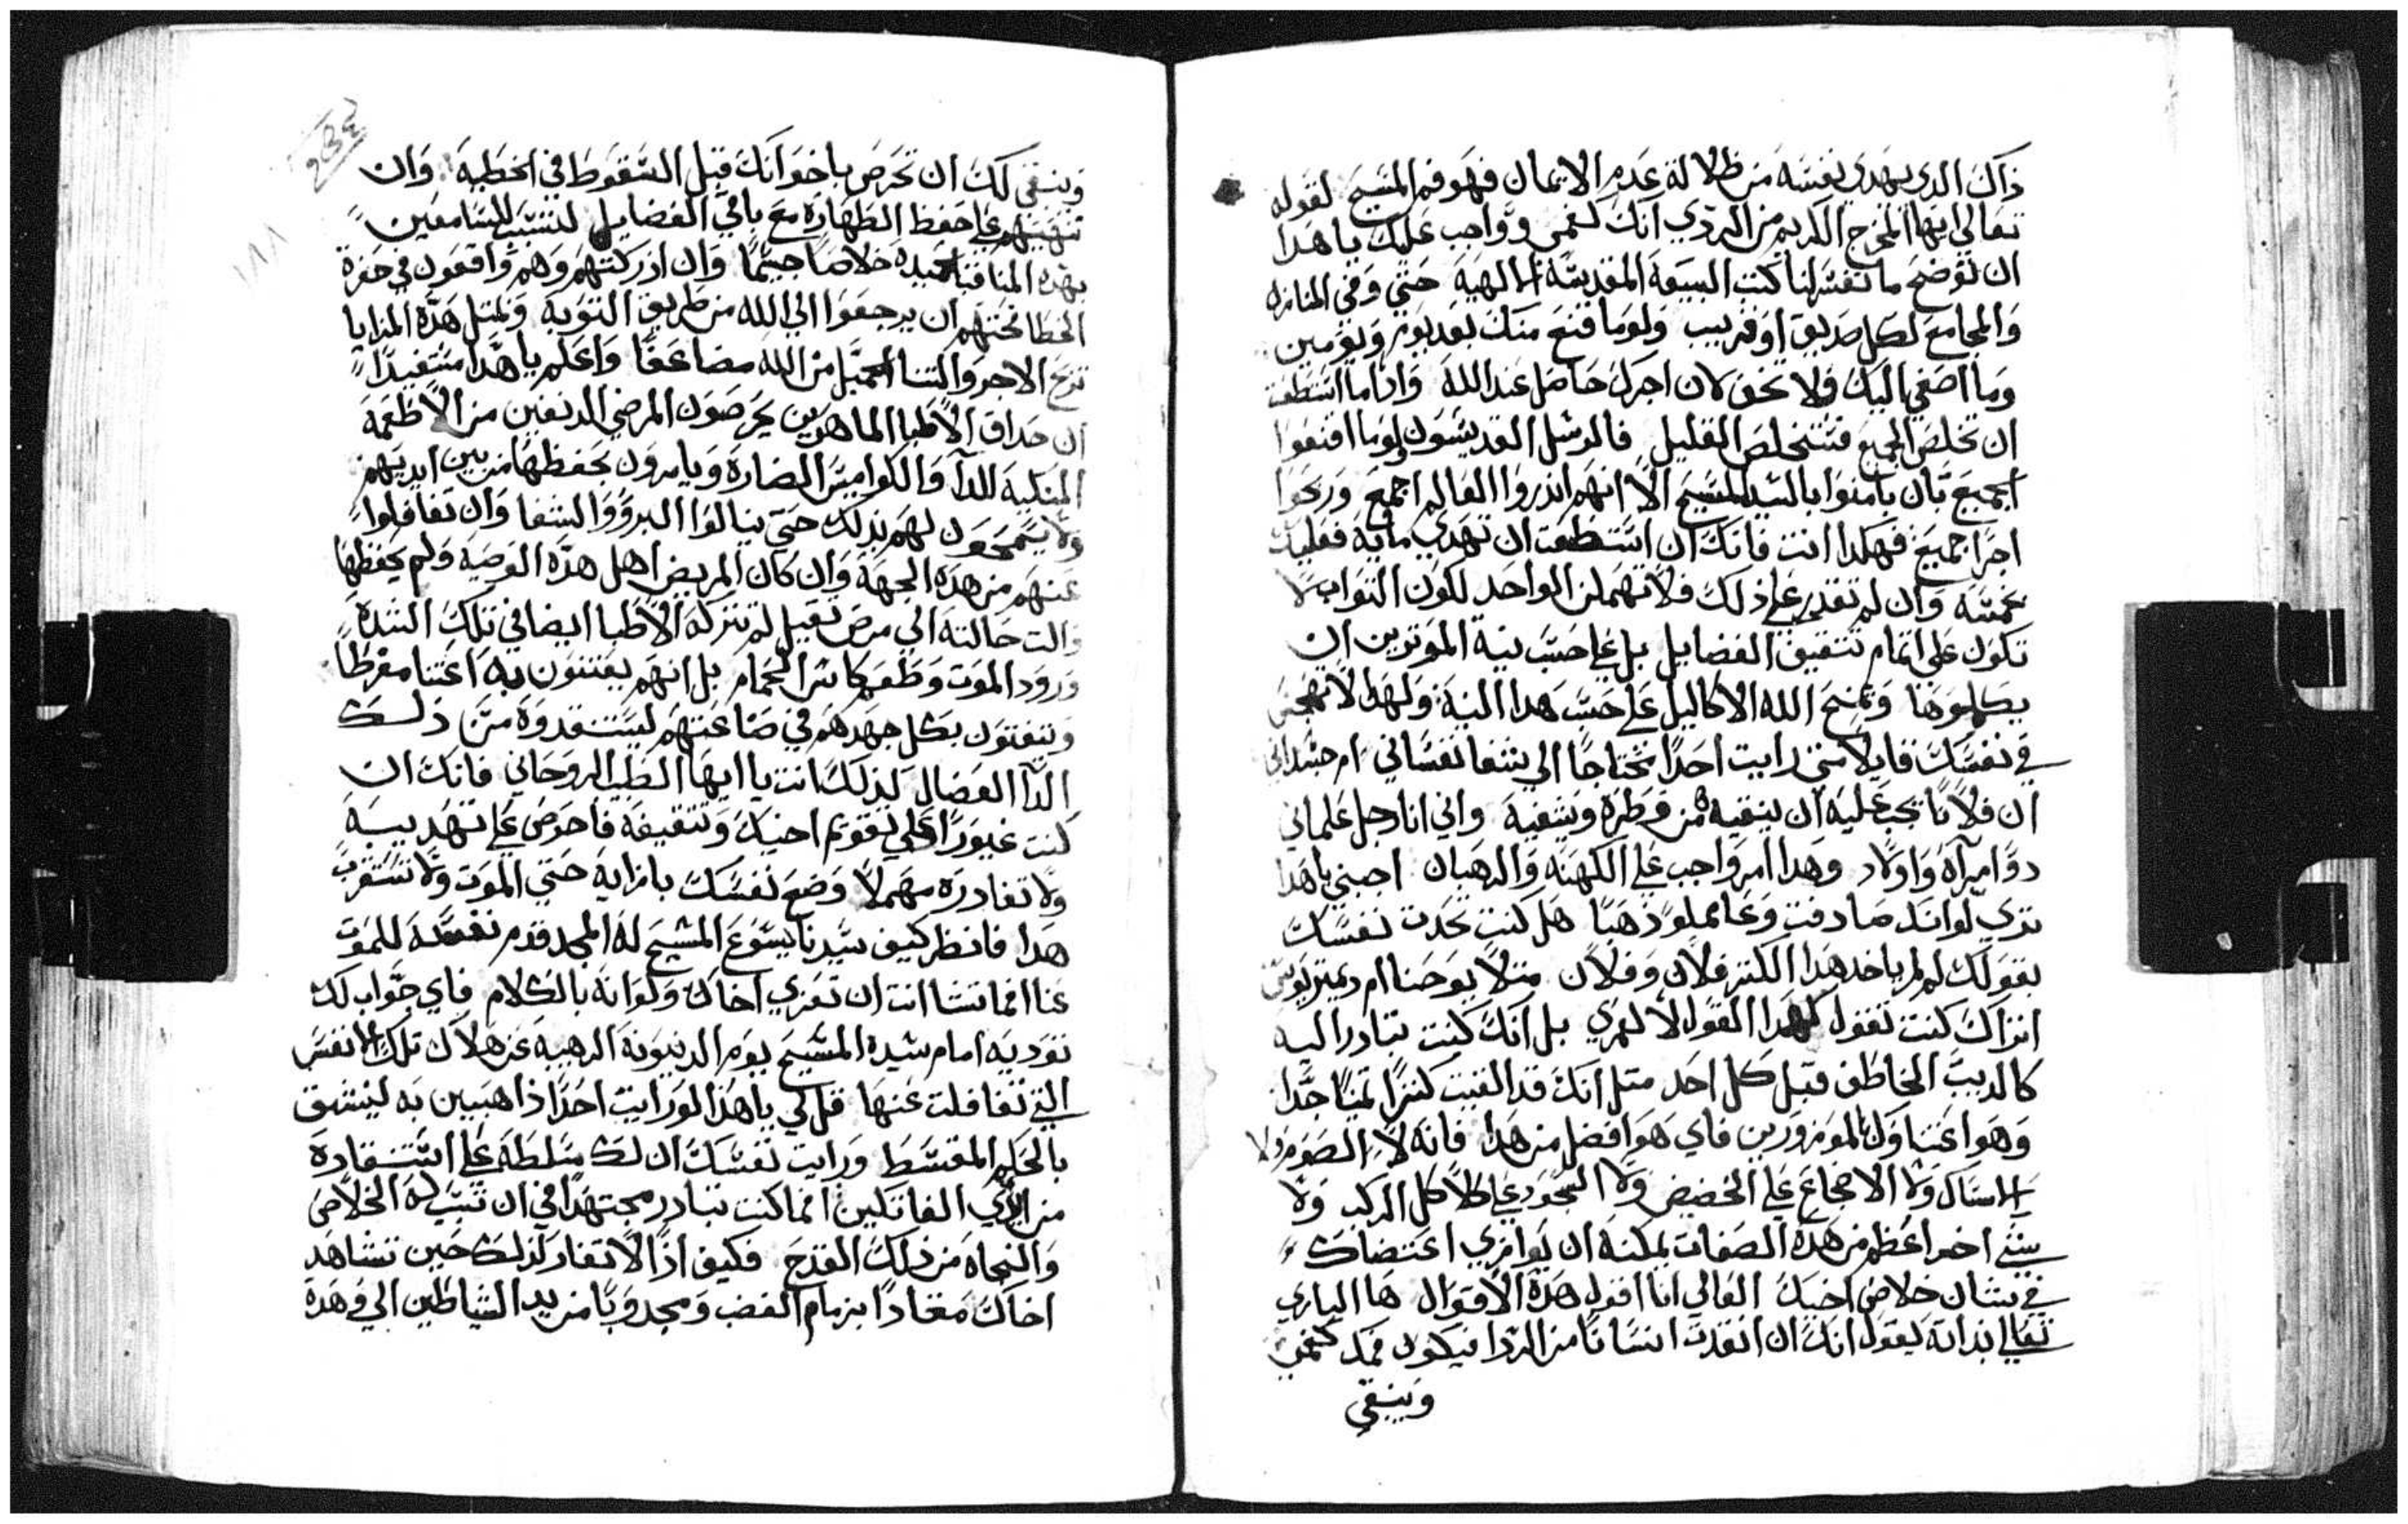 ذاك الدي يهدي نفسه من ظلالة عدم الايمان فهو فم المسيح لقوله
تعالي ايها المخرج الكريم من الردي انك كفمي وواجب عليك يا هدا
ان توضح ما تفسر لنا كتب البيعة المقدسة الالهية حتي وفي المنازل
والمجامع لكل صديق او قريب ولو ما قنع منك بعد يوم ويومين
وما اصغي اليك فلا تخف لان اجرك حاصل عند الله واذا ما استطعت
ان تخلص الجميع فستخلص القليل فالرسل القديسون ولو ما اقنعوا
الجميع بان يامنوا بالسيد المسيح الا انهم اندروا العالم اجمع وربحوا
اجرًا جميع فهكدا انت فانك ان استطعت ان تهدي ماية فعليك
بخمسه وان لم تقدر علي ذلك فلا تهملن الواحد لكون التواب لا
تكون علي اتمام تتقيف الفضايل بل علي حسب نية الموترين ان
يكملوها ويمنح الله الاكاليل علي حسب هدا النية ولهدا لا تهجس
في نفسك قايلا متي رايت احدًا محتاجًا الي شفا نفساني ام جسداني
ان فلانًا يجب عليه ان ينقيه من وطره ويشفيه واني انا رجل علماني
دو امراة واولاد وهدا امر واجب علي الكهنه والرهبان اجبني يا هدا
تري لو انك صادفت وعا مملو ذهبًا هل كنت تحدت نفسك
بقولك لم لم ياخد هدا الكنز فلان وفلان متلا يوحنا ام ديمتريوس
اتراك كنت تقول كهدا القول لا لعمري بل انك كنت تبادر اليه
كالديب الخاطف قبل كل احد متل انك قد الفيت كنزًا تمينًا جدًا
وهو اعتناوك بالموزورين فاي هو افضل من هدا فانه لا الصوم ولا
السناك ولا الاضجاع علي الحضيض ولا السجود علي كلاكل الركب ولا
شي اخر اعظم من هده الصفات يمكنه ان يوازي اعتضادك
في شان خلاص اخيك الغالي انا اقول هده الاقوال ها الباري
تعالي بداته يقول انك ان انقدت انسانًا من الردا فيكون فمك كفمي
وينبغي
وينبغي لك ان تحرص باخوانك قبل السقوط في الخطيه وان
تنهينهم علي حفظ الطهارة مع باقي الفضايل لتسبب للسامعين
بهده المناقب الحميده خلاصًا جسيمًا وان ادركتهم وهم واقعون في حفرة
الخطا فحتهم ان يرجعوا الي الله من طريق التوبه ولمتل هده المزايا
تربح الاجر والتنا الجميل من الله مضاعفًا واعلم يا هدا مستفيدًا
ان حداق الاطبا الماهرين يحرصون المرضي الدنفين من الاطعمة
المنكيه للدا والكواميس الضارة ويامرون بحفظها من بين ايديهم
ولا يسمحون لهم بدلك حتي ينالوا البروو والشفا وان تغافلوا
عنهم من هده الجهة وان كان المريض اهل هده الوصيه ولم يحفظها
والت حالته الي مرض تقيل لم تتركه الاطبا ايضا في تلك الشدة
ورود الموت وطعم كاس الحمام بل انهم يعتنون به اعتنا مفرطًا
ويتفتون بكل جهدهم في صناعتهم ليستنقدوه من ذلك
الدا العضال لذلك انت يا ايها الطبيب الروحاني فانك ان
كنت غيورًا علي تقويم اخيك وتتقيفه فاحرص علي تهديبه
ولا تغادره مهملا وضع نفسك بازايه حتي الموت ولا تستغرب
هدا فانظر كيف سيدنا يسوع المسيح له المجد قدم نفسه للموت
عنا افما تشا انت ان تعزي اخاك ولو انه بالكلام فاي جواب لك
توديه امام سيده المسيح يوم الدينونة الرهيبه عن هلاك تلك الانفس
التي تغافلت عنها قل لي يا هدا لو رايت احدًا ذاهبين به ليشنق
بالحكم المقسط ورايت نفسك ان لك سلطة علي استنقاده
من ايدي القاتلين افما كنت تبادر مجتهدًا في ان تسبب له الخلاص
والنجاه من ذلك القدح فكيف اذًا لا تغادر كذلك حين تشاهد
اخاك مقادًا بزمام الغضب ومجدوبًا من يد الشياطين الي وهدة